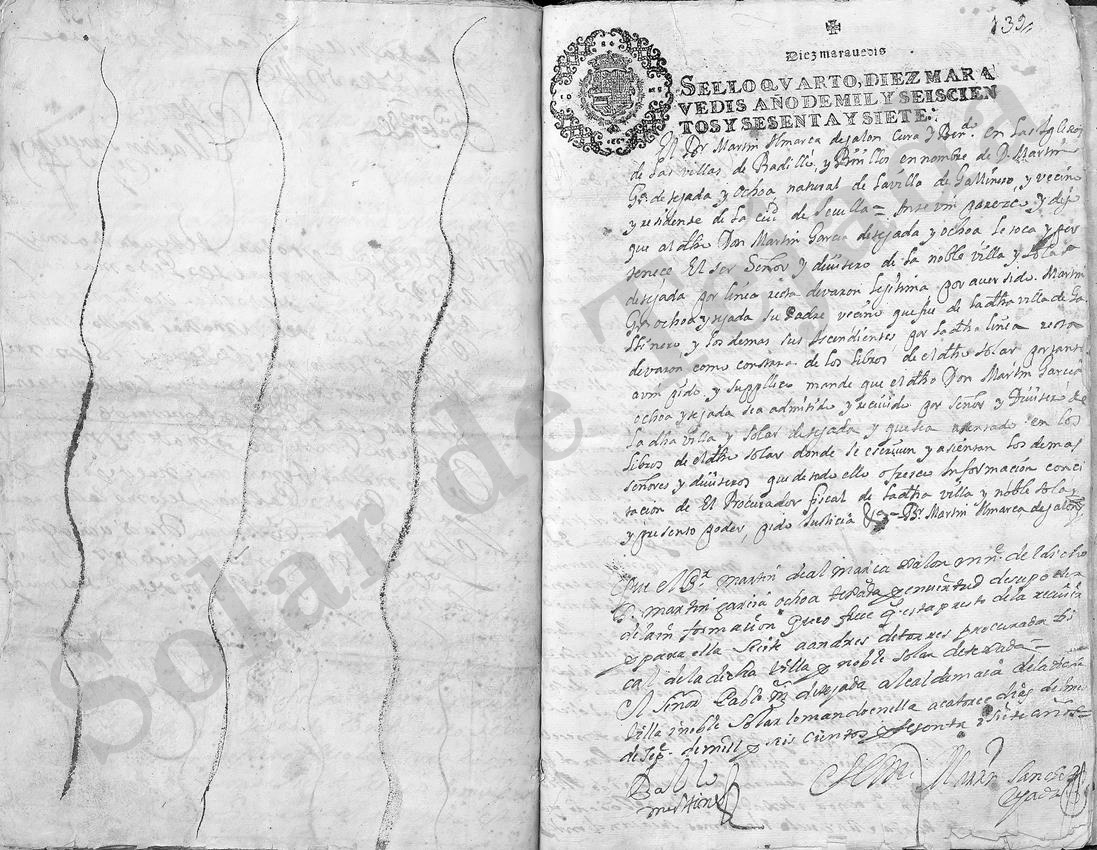 139
Diez maravedis
SELLO QVARTO, DIEZ MARA
VEDIS AÑO DE MIL Y SEISCIEN
TOS Y SESENTA Y SIETE.
El Br Martin Almarca dejalon Cura y Benᵈᵒ en las Iglesias
de las villas de Badillo y en nombre de D. Martin
Gª detejada y Ochoa natural de la villa de Gallinero y vecino
y residente de la ciuᵈ de Sevilla = Ante vm parezco y digo
que al dho Don Martin Garcia detejada y ochoa le toca y per
tenece El ser Señor y diuisero de la noble villa y solar
detejada por linea recta devaron lejitima por aver sido Martin
Gª ochoa y tejada su Padre vecino que fue de la dha villa de Ga
llinero y los demas sus ascendientes por la dha linea recta
devaron como constara de los libros de el dho solar por tanto
a vm pido y supplico mande que el dho Don Martin Garcia
ochoa y tejada sea admitido y recivido por señor y Diuisero de
la dha villa y solar detejada y que sea asentado en los
libros de el dho solar donde se escriuen y asientan los demas
señores y diuiseros que de todo ello ofresco Informacion con ci
tacion de El Procurador fiscal de la dha villa y noble solar
y presento poder, pido Justicia &ª = Br Martin Almarca dejalon
Que el Br martin de almarca xalon en nᵉ de el dicho
D. martin garcia ochoa texada y en uirtud de su poder
de la informaçion que ofrece q esta presto de la recivir
y para ella se cite a andres de torres procurador fis
cal de la dicha Villa y noble solar de texada =
El Señor Pablo mᶻ detejada alcalde maior de la dha
Villa y noble solar lo mando en ella a catorce dias del mes
de Sepᵉ de mill y seis cientos y sesenta y siete años =
Pablo
martinez
Ante mi Martin Sanchez
Solar de Tejada